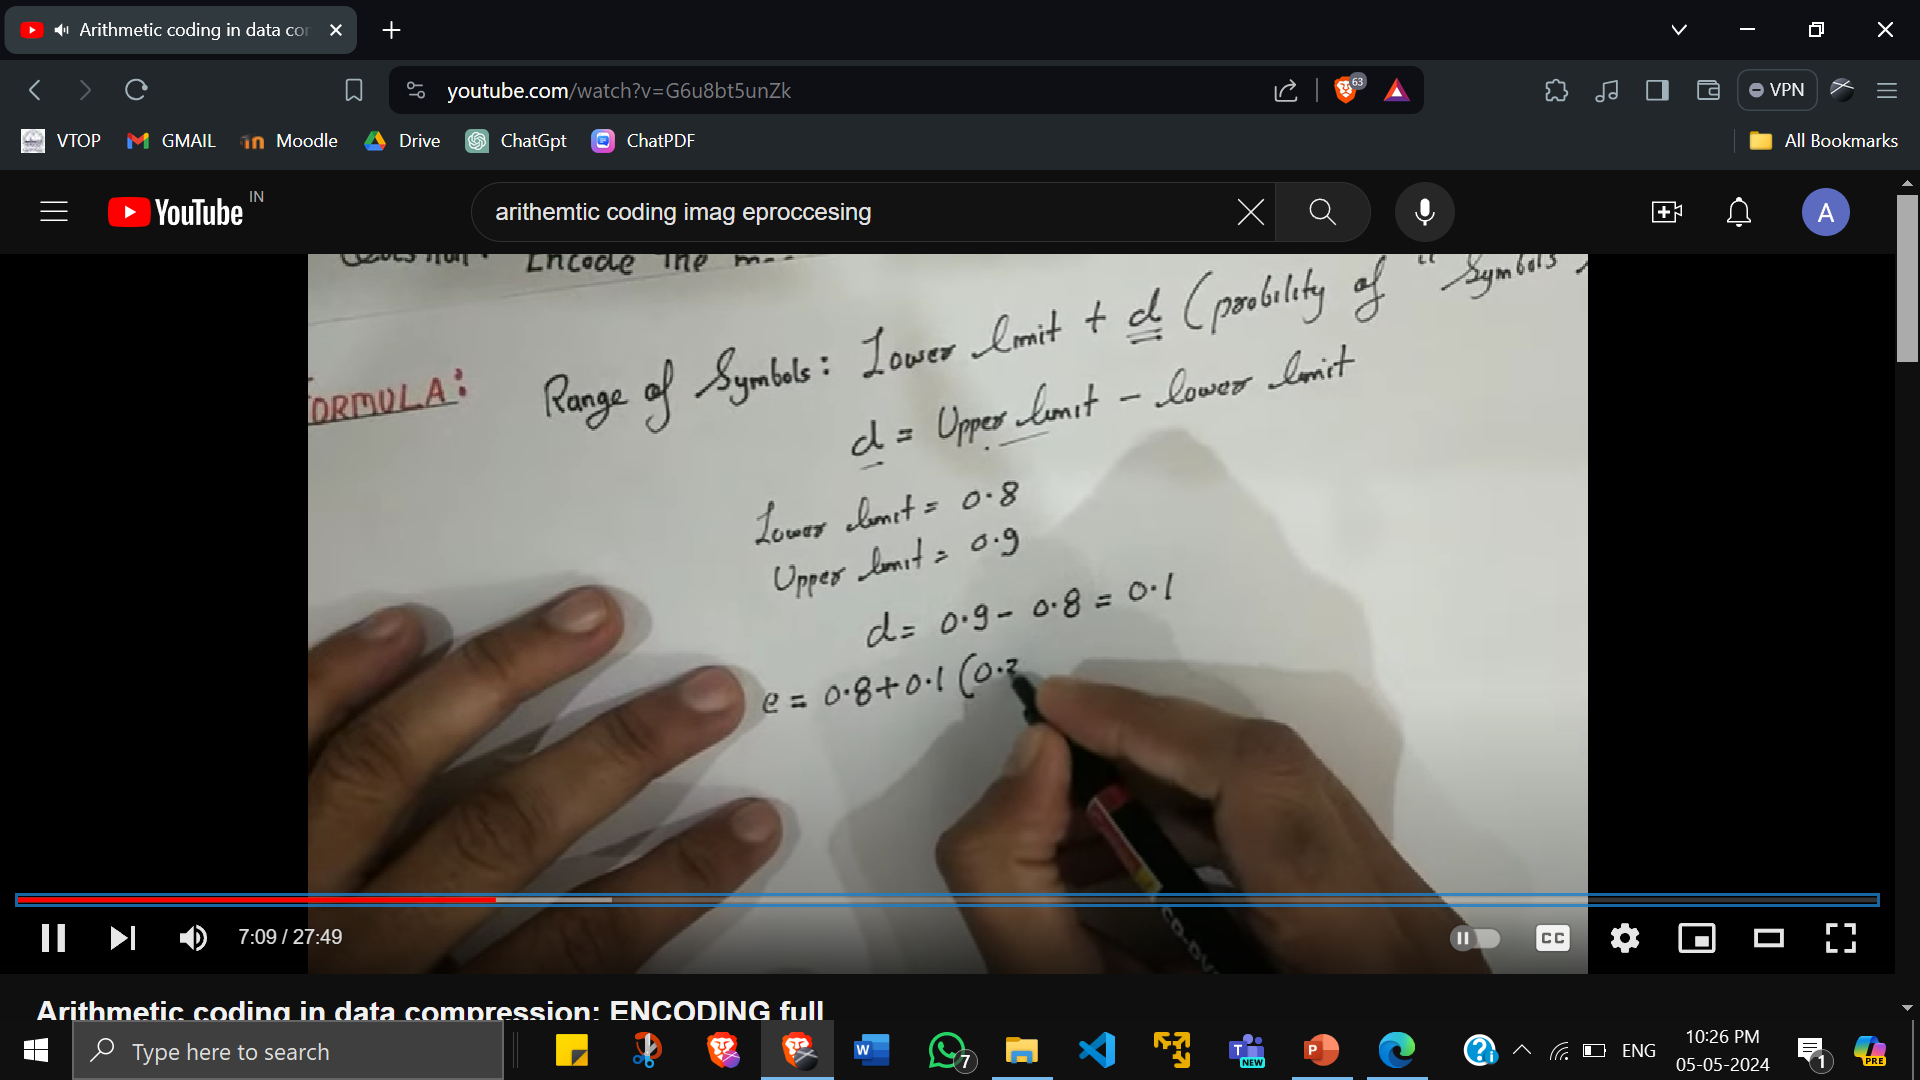 Arithmetic coding in data co
youtube.com/watch?v=G6u8bt5unZk
63
VPN
VTOP
GMAIL
Moodle
Drive
ChatGpt
ChatPDF
All Bookmarks
YouTube IN
arithemtic coding imag eproccesing
A
Encode The
FORMULA: Range of Symbols: Lower limit + d (probility of Symbols
d = Upper limit - lower limit
Lower limit = 0.8
Upper limit = 0.9
d = 0.9 - 0.8 = 0.1
e = 0.8+0.1 (0.3
7:09 / 27:49
CC
Arithmetic coding in data compression: ENCODING full
Type here to search
W
7
NEW
P
ENG
10:26 PM
05-05-2024
1
PRE